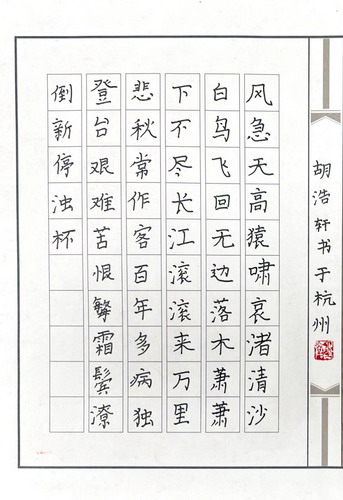 胡浩轩书于杭州
风急天高猿啸哀渚清沙
白鸟飞回无边落木萧萧
下不尽长江滚滚来万里
悲秋常作客百年多病独
登台艰难苦恨繁霜鬓潦
倒新停浊杯